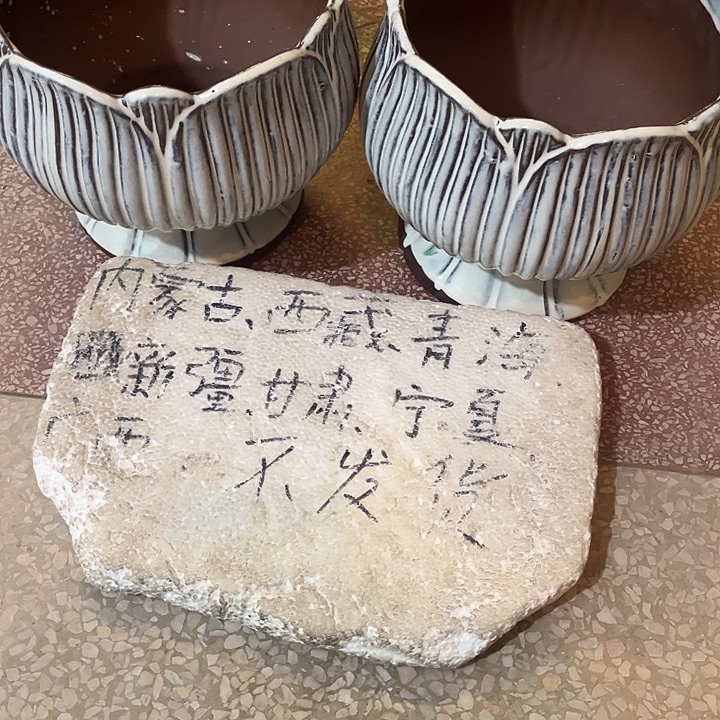 内蒙古、西藏、青海
新彊、甘肃、宁夏
广西
不发货